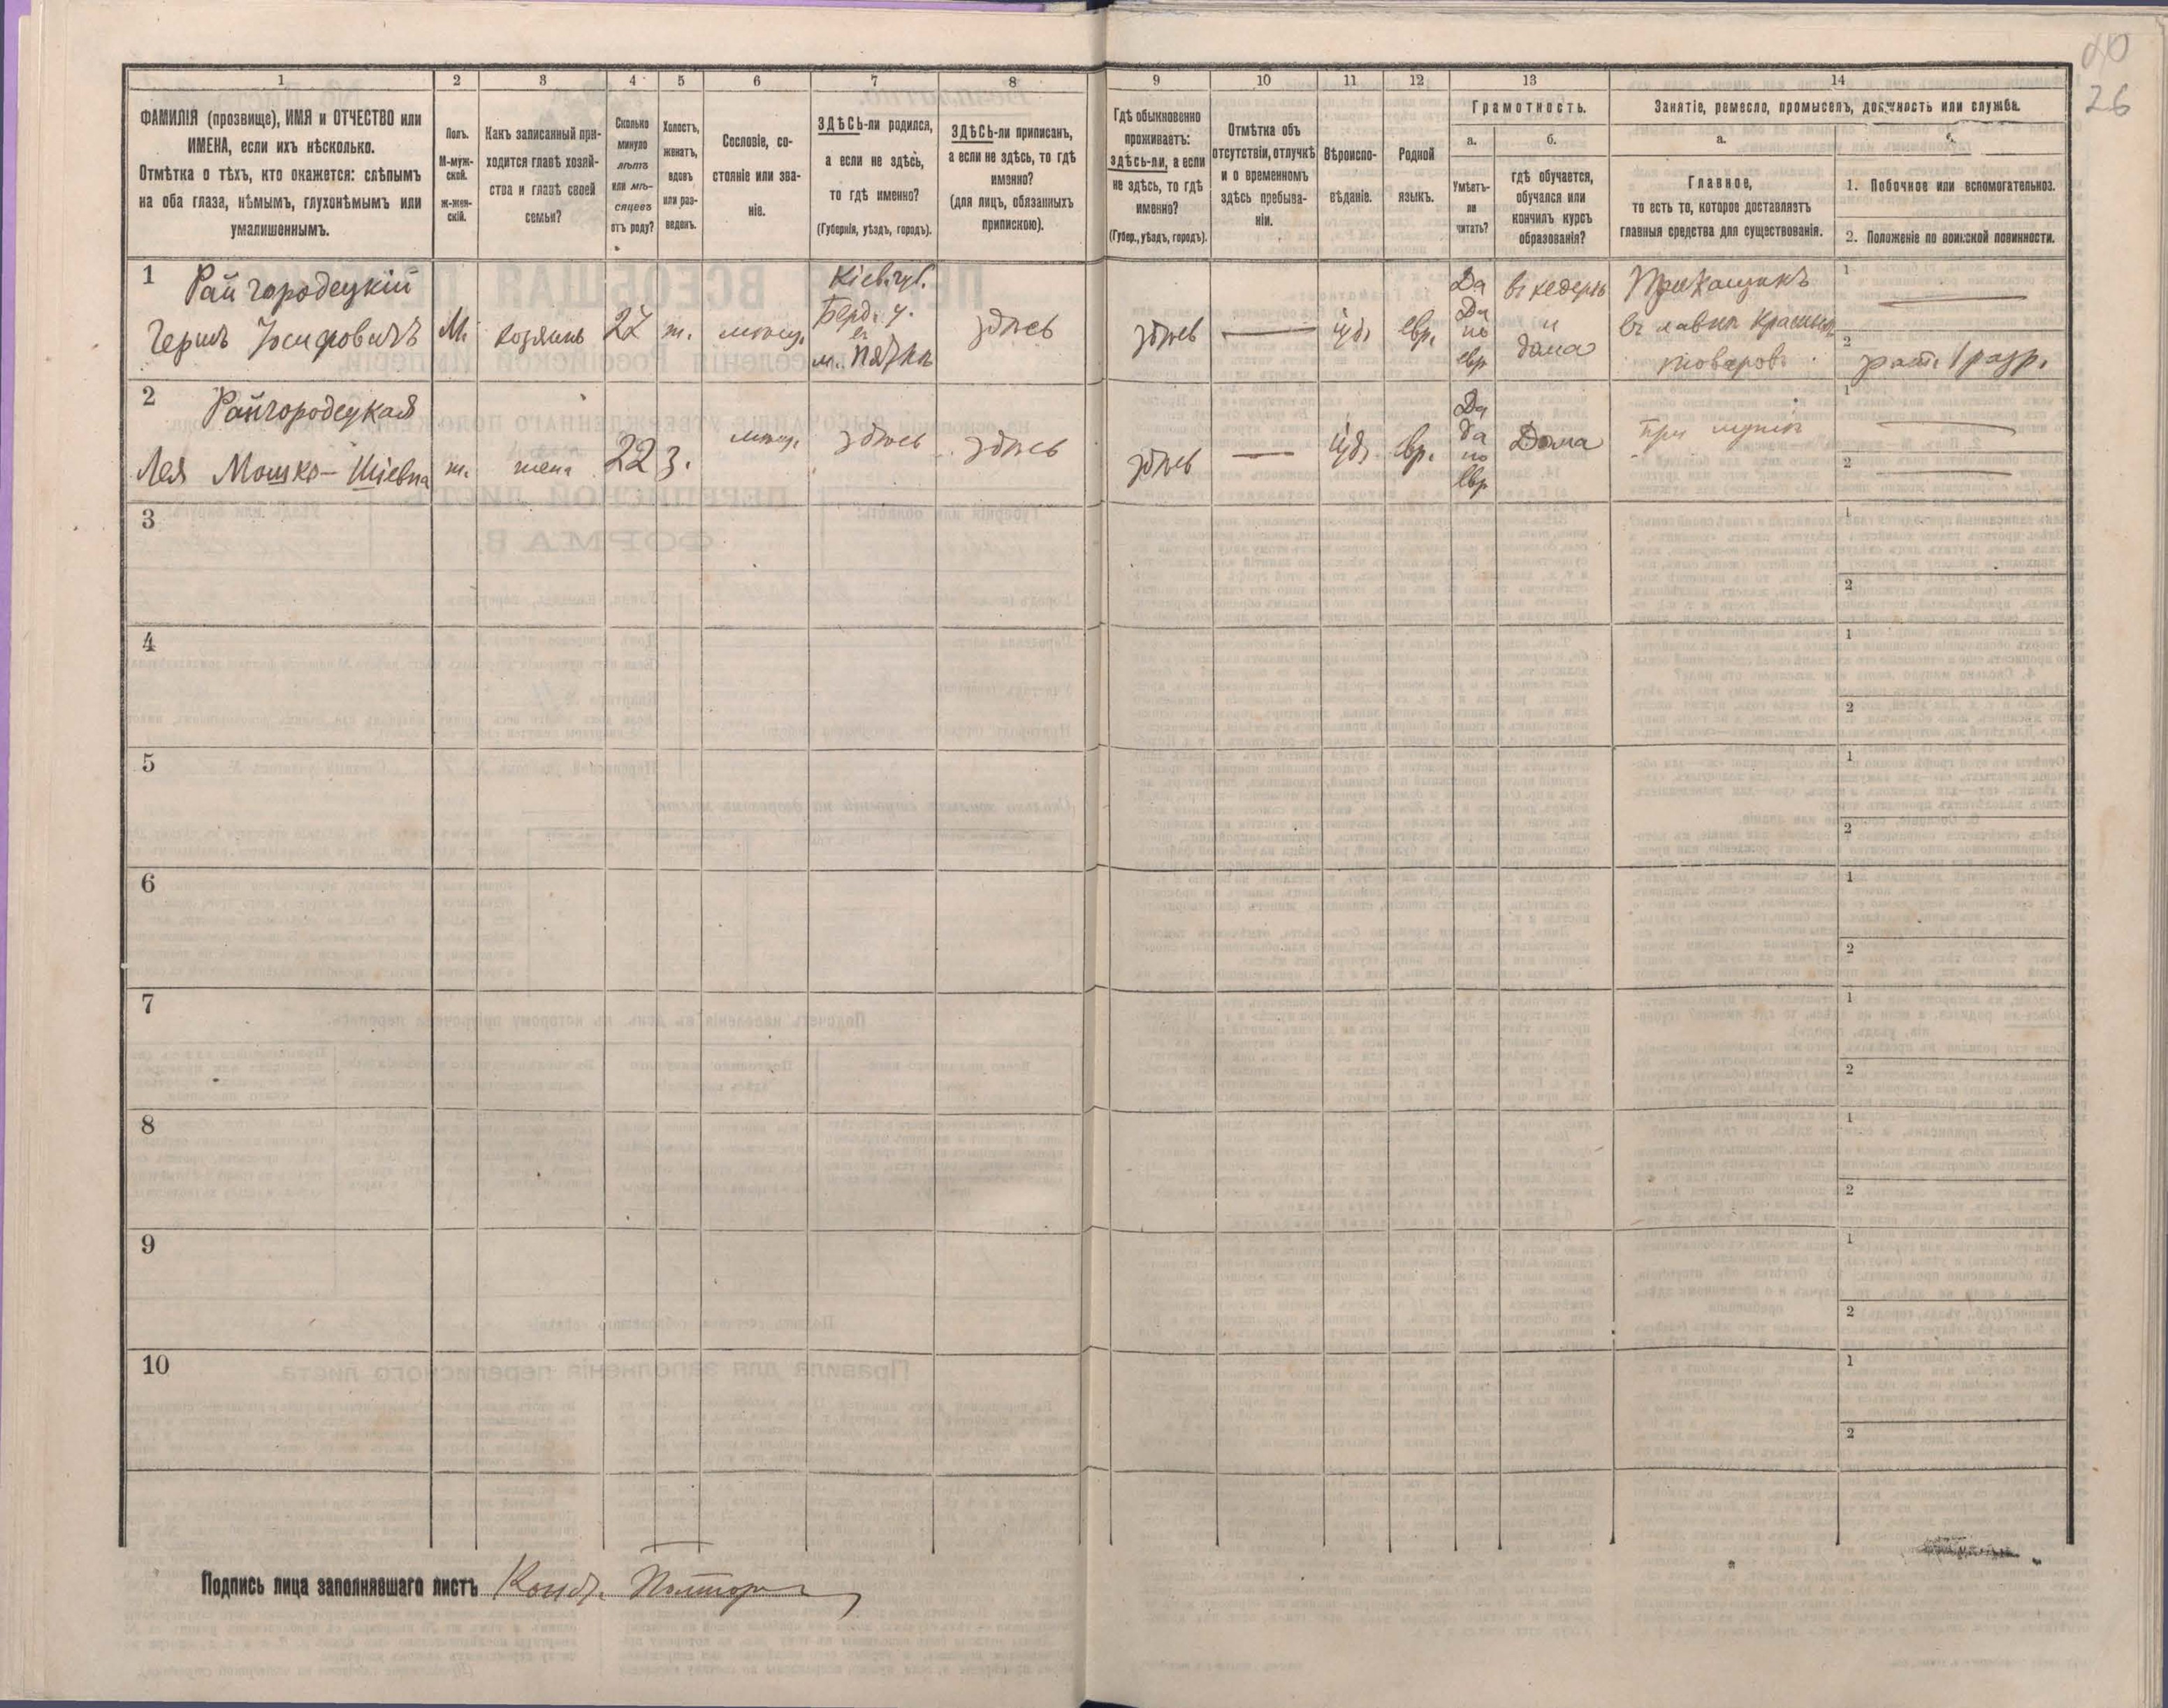 40
26
1 2 3 4 5 6 7 8 9 10 11 12 13 14
ФАМИЛІЯ (прозвище), ИМЯ и ОТЧЕСТВО или
ИМЕНА, если ихъ нѣсколько.
Отмѣтка о тѣхъ, кто окажется: слѣпымъ
на оба глаза, нѣмымъ, глухонѣмымъ или
умалишеннымъ.
Полъ.
М-муж-
ской.
ж-жен-
скій.
Какъ записанный при-
ходится главѣ хозяй-
ства и главѣ своей
семьи?
Сколько
минуло
лѣтъ
или мѣ-
сяцевъ
отъ роду?
Холостъ,
женатъ,
вдовъ
или раз-
веденъ.
Сословіе, со-
стояніе или зва-
ніе.
ЗДѢСЬ-ли родился,
а если не здѣсь,
то гдѣ именно?
(Губернія, уѣздъ, городъ).
ЗДѢСЬ-ли приписанъ,
а если не здѣсь, то гдѣ
именно?
(для лицъ, обязанныхъ
припискою).
Гдѣ обыкновенно
проживаетъ:
здѣсь-ли, а если
не здѣсь, то гдѣ
именно?
(Губер., уѣздъ, городъ).
Отмѣтка объ
отсутствіи, отлучкѣ
и о временномъ
здѣсь пребыва-
ніи.
Вѣроиспо-
вѣданіе.
Родной
языкъ.
Грамотность.
а.
Умѣетъ-
ли
читать?
б.
гдѣ обучается,
обучался или
кончилъ курсъ
образованія?
Занятіе, ремесло, промыселъ, должность или служба.
а.
Главное,
то есть то, которое доставляетъ
главныя средства для существованія.
1. Побочное или вспомогательное.
2. Положеніе по воинской повинности.
1
Райгородецкій
Гершъ Іосифовичъ
М.
хозяинъ
27
ж.
мѣщ.
Кіев. губ.
Берд. у.
м. Пятка
здѣсь
здѣсь
іуд.
евр.
Да
Да
по
евр
въ хедерѣ
и
дома
Прикащикъ
въ лавкѣ красныхъ
товаровъ
1
2
рат. 1 разр.
2
Райгородецкая
Лея Мошко-Шіевна
ж.
жена
22
з.
мѣщ.
здѣсь
здѣсь
здѣсь
іуд.
евр.
Да
да
по
евр
Дома
при мужѣ
1
2
3
1
2
4
1
2
5
1
2
6
1
2
7
1
2
8
1
2
9
1
2
10
1
2
Подпись лица заполнявшаго листъ